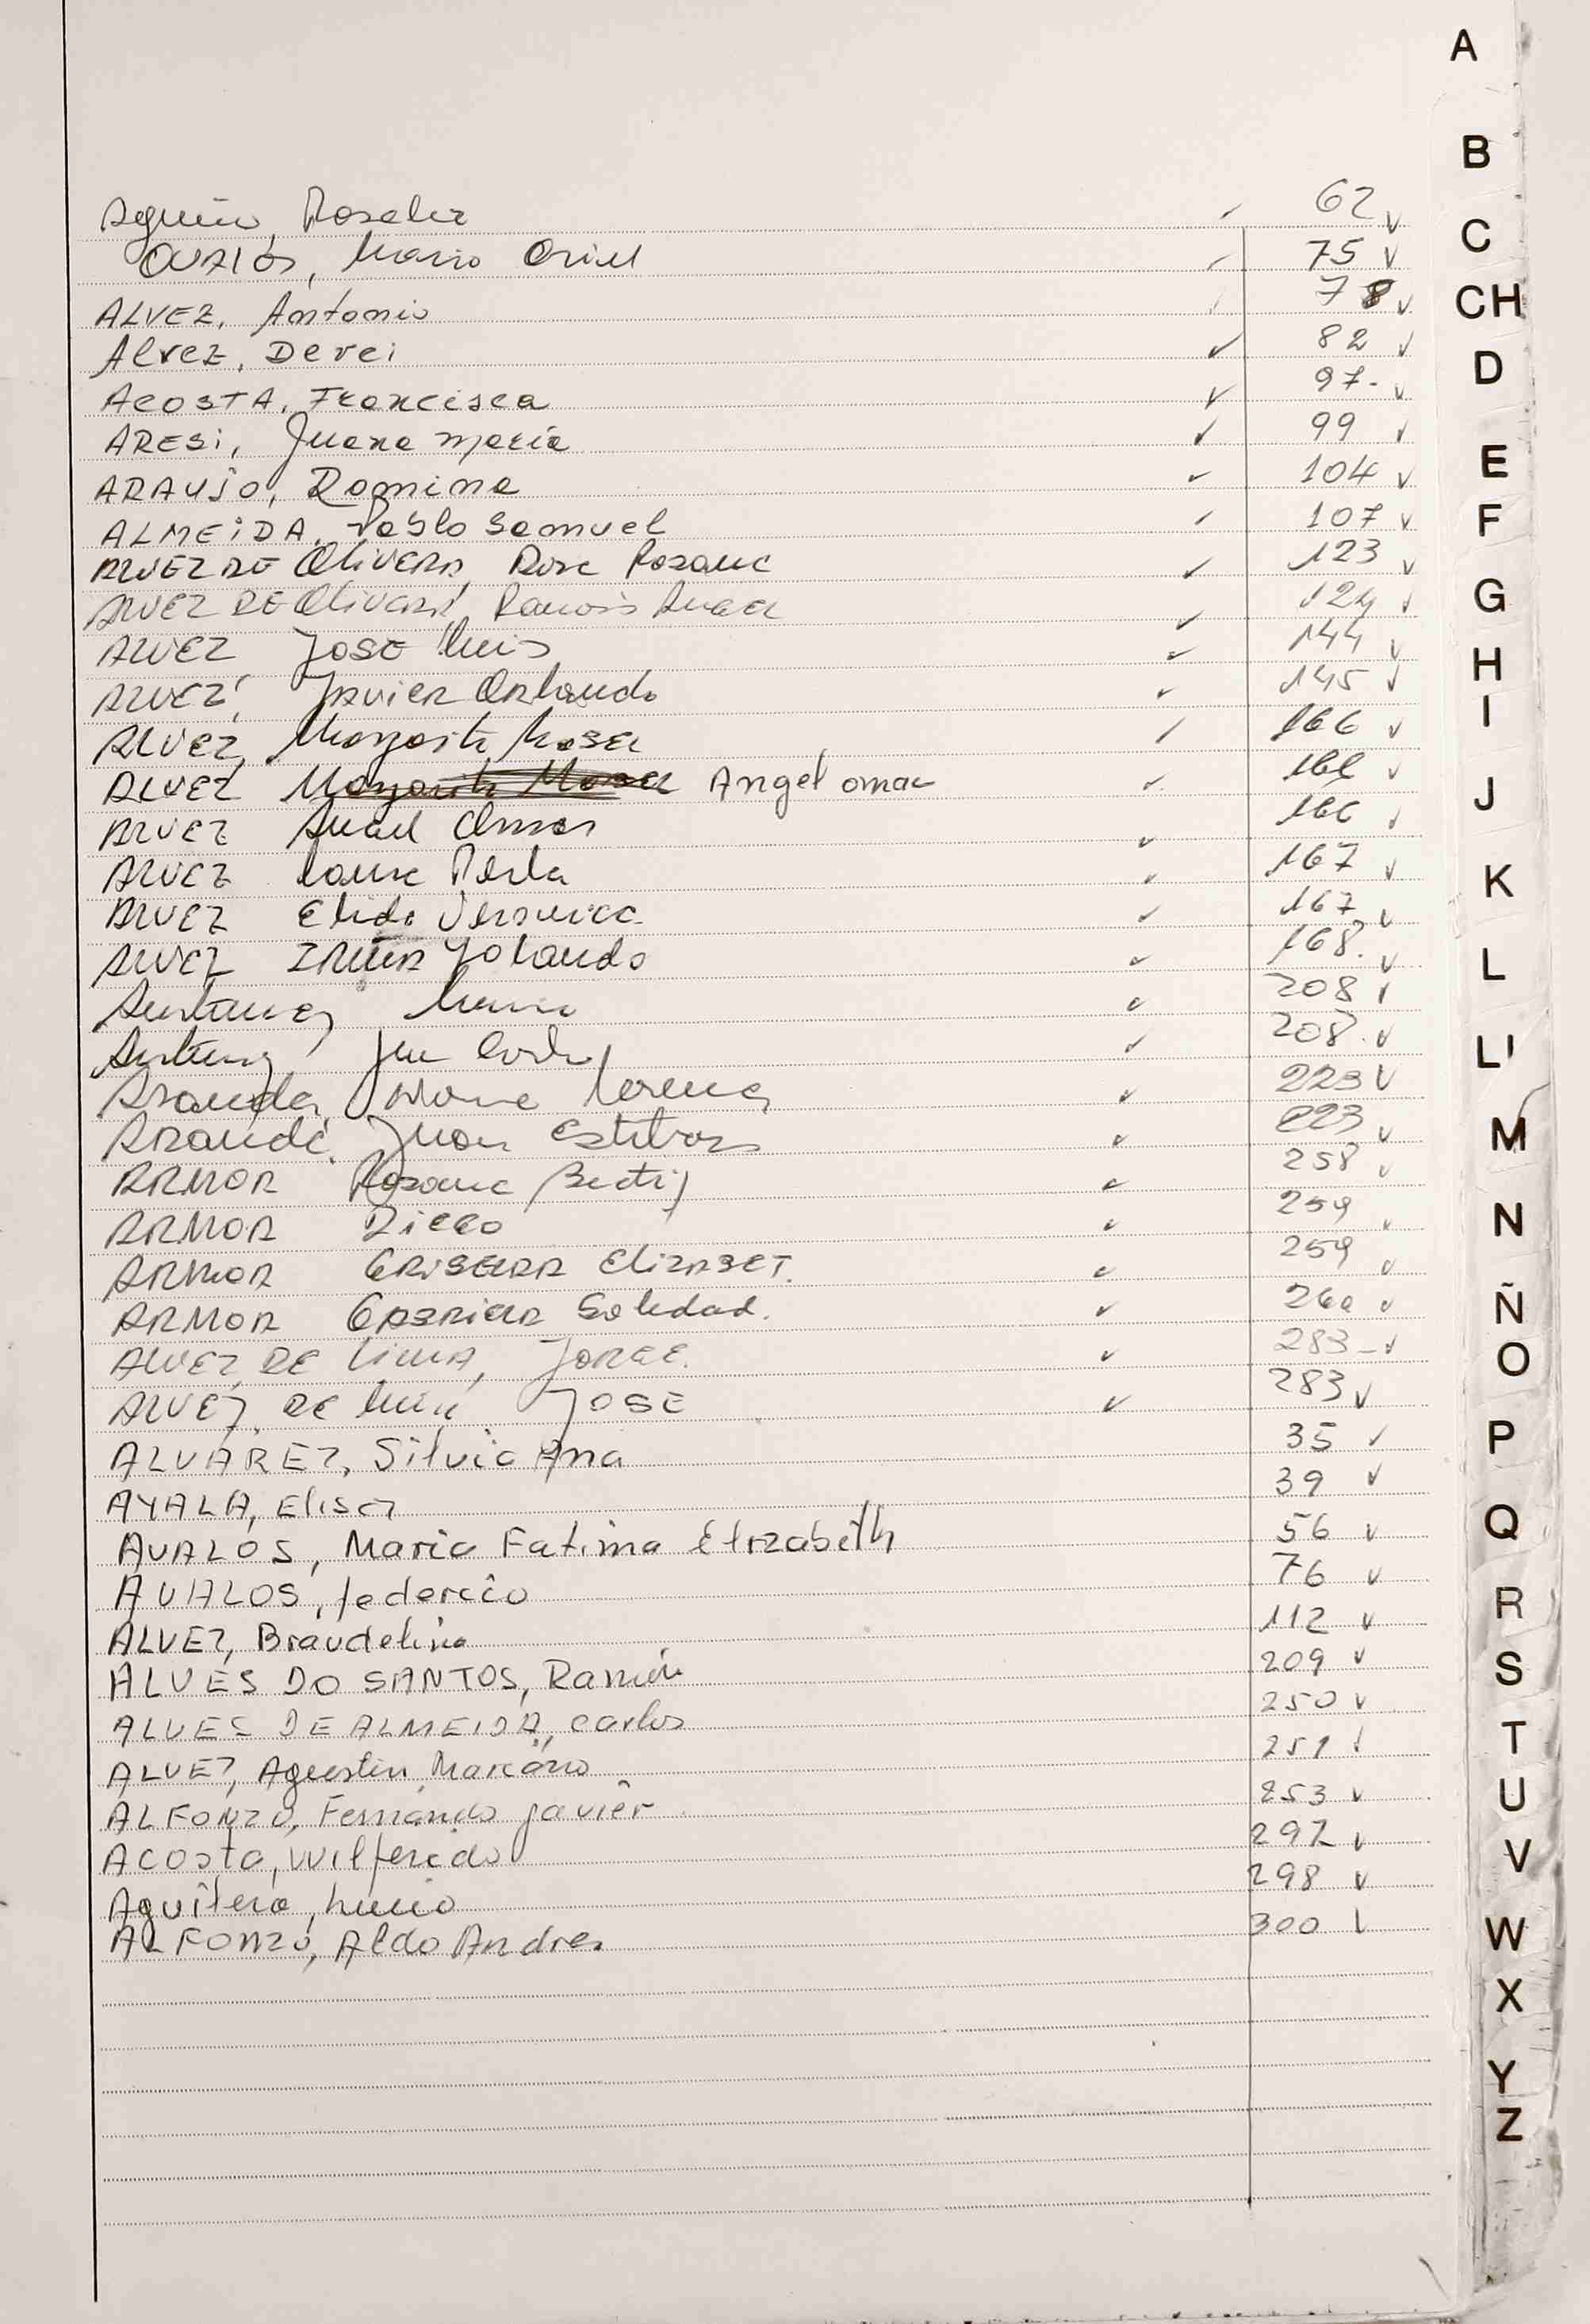 Rosalia 62
OVALOS, Mario Oriel 75
ALVEZ, Antonio 78
Alvez, Derei 82
ACOSTA, Francisca 97-
ARESi, Juana maria 99
ARAUJO, Romina 104
ALMEiDA, Pablo Samuel 107
ALVEZ DE OliverA, Rosa Rosana 123
ALVEZ DE OliverA, Ramon Angel 124
ALVEZ JOSE Luis 144
ALVEZ, JAvier Orlando 145
ALVEZ, Margarita Rosa 166
ALVEZ Angel omar 166
ALVEZ Angel Omar 166
ALVEZ Perla 167
ALVEZ Elida Veronica 167
ALVEZ Yolanda 168.
208
208.
Aranda, Lorena 223
Aranda, Juan Esteban 223
ARMOA Rosana Beatriz 258
ARMOA DIEGO 259
ARMOA GRISELDA ElizABET. 259
ARMOA GABRIELA Soledad. 260
ALVEZ DE LimA, JORGE. 283-
ALVEZ DE Lima JOSE 283
ALVAREZ, Silvia Ana 35
AYALA, Elisa 39
AVALOS, Maria Fatima Elizabeth 56
AVALOS, federico 76
ALVEZ, Braudelina 112
ALVES DO SANTOS, Ramón 209
ALVES DE ALMEIDA, carlos 250
ALVEZ, Agustin Mariano 251
ALFONZO, Fernando javier 253
ACOSTA, Wilferido 297
Aguilera, Lucio 298
ALFONZO, Aldo Andres 300
A
B
C
CH
D
E
F
G
H
I
J
K
L
Ll
M
N
Ñ
O
P
Q
R
S
T
U
V
W
X
Y
Z